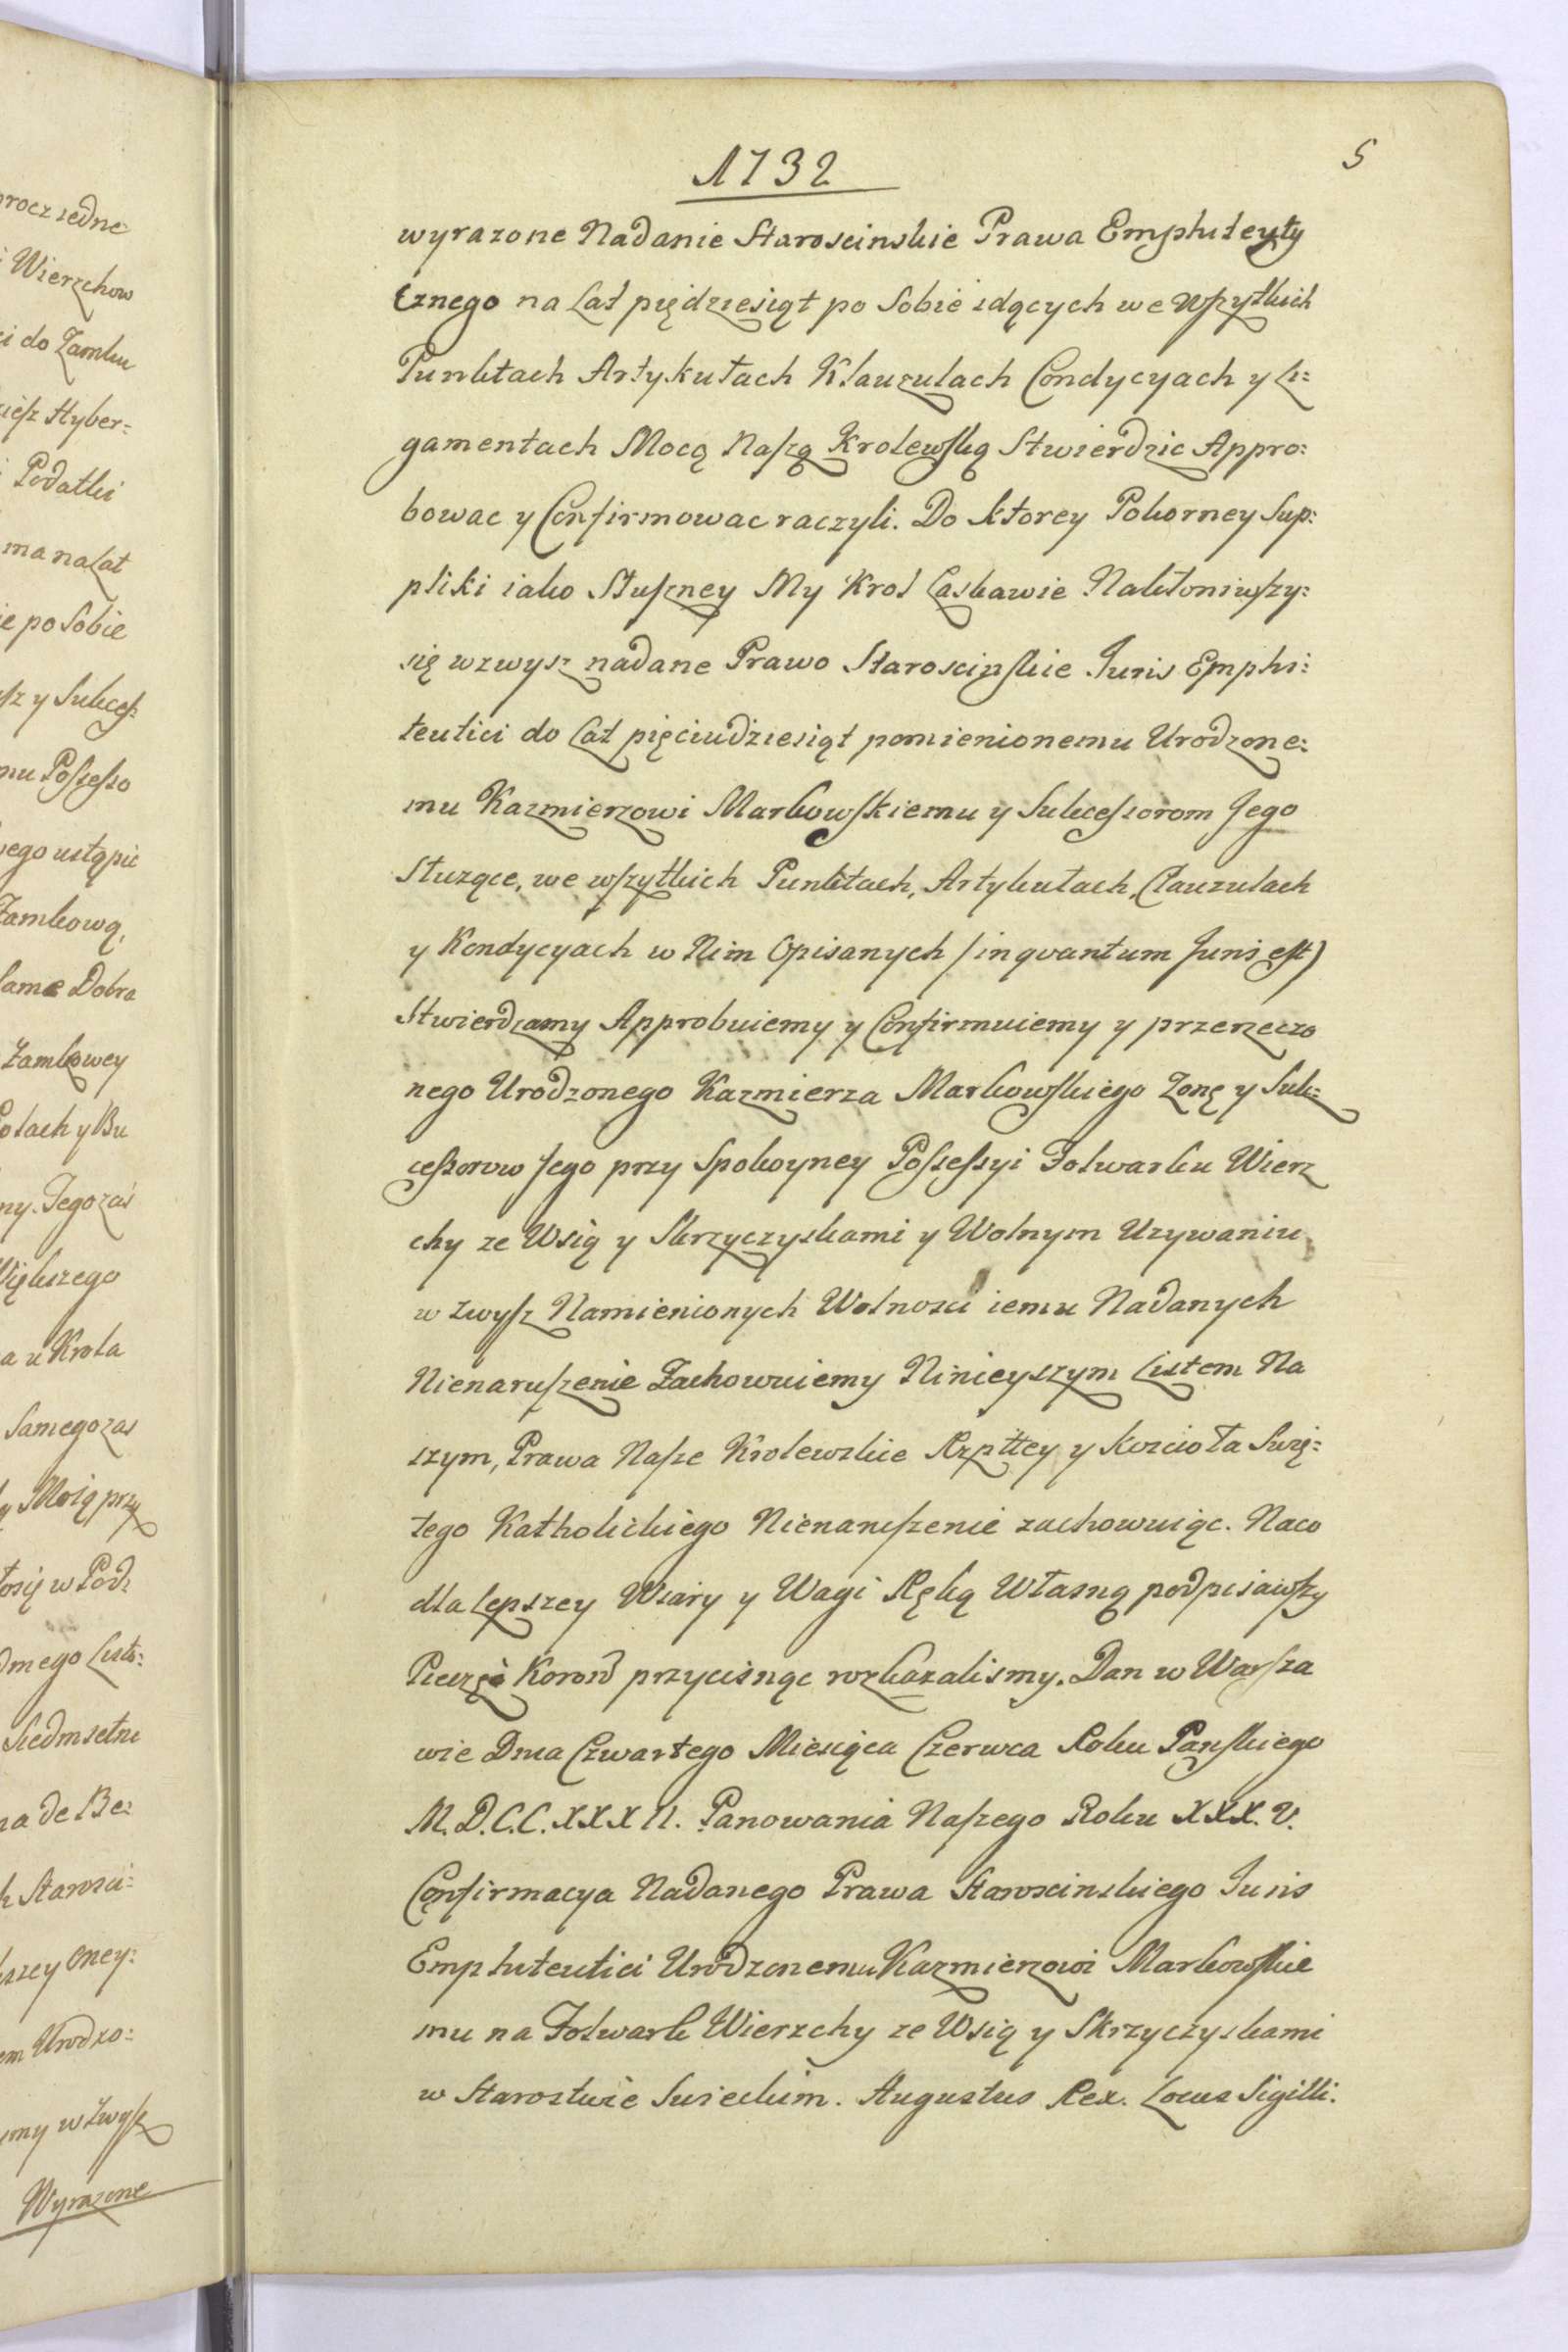 1732
5
wyrazone Nadanie Staroscinskie Prawa Emphiteyty
cznego na Lat pięдziesiąt po Sobie idących we wszytkich
Punktach Artykułach Klauzulach Condycyach y Li:
gamentach Mocą Naszą Krolewską Stwierdzic Appro:
bowac y Confirmowac raczyli. Do ktorey Pokorney Sup:
pliki iako Słuszney My Krol Łaskawie Nakłoniwszy:
się wzwysz nadane Prawo Staroscinskie Juris Emphi:
teutici do Lat pięciudziesiąt pomienionemu Urodzone:
mu Kazmierzowi Markowskiemu y Sukcessorom Jego
Służące, we wszytkich Punktach, Artykułach, Clauzulach
y Kondycyach w Nim Opisanych /inqvantum Juris est)
Stwierdzamy Approbuiemy y Confirmuiemy y przerzeczo
nego Urodzonego Kazmierza Markowskiego Zonę y Suk:
cessorow Jego przy Spokoyney Possessyi Folwarku Wierz
chy ze Wsią y Skrzyczyskami y Wolnym Uzywaniu
w zwysz Namienionych Wolnosci iemu Nadanych
Nienaruszenie Zachowuiemy Ninieyszym Listem Na
szym, Prawa Nasze Krolewskie Rzpltey y Koscioła Swię:
tego Katholickiego Nienaruszenie zachowuiąc. Naco
dla lepszey Wiary y Wagi Ręką Własną podpisawszy
Pieczęć Koron przycisnąc rozkazalismy. Dan w Warsza
wie Dnia Czwartego Miesiąca Czerwca Roku Panskiego
M.D.C.C.XXXII. Panowania Naszego Roku XXX.V.
Confirmacya Nadanego Prawa Staroscinskiego Juris
Emphiteutici Urodzonemu Kazmierzowi Markowskie
mu na Folwark Wierzchy ze Wsią y Skrzyczyskami
w Starostwie Suieckim. Augustus Rex. Locus Sigilli.
procz iedne
Wierzchow
i do Zamku
Hyber:
Podatki
ma na Lat
ie po Sobie
sz y Sukces:
mu Possesso
ego ustąpic
Zamkową,
same Dobra
Zamkowey
ołach y Bu
ny. Tego zas
Większego
a u Krola
Samego zas
Moią przy
łosię w Pod:
dmego Listo:
Siedmsetne
na de Be:
h Starosci:
szey Oney:
em Urodzo:
my w zwysz
Wyrazone